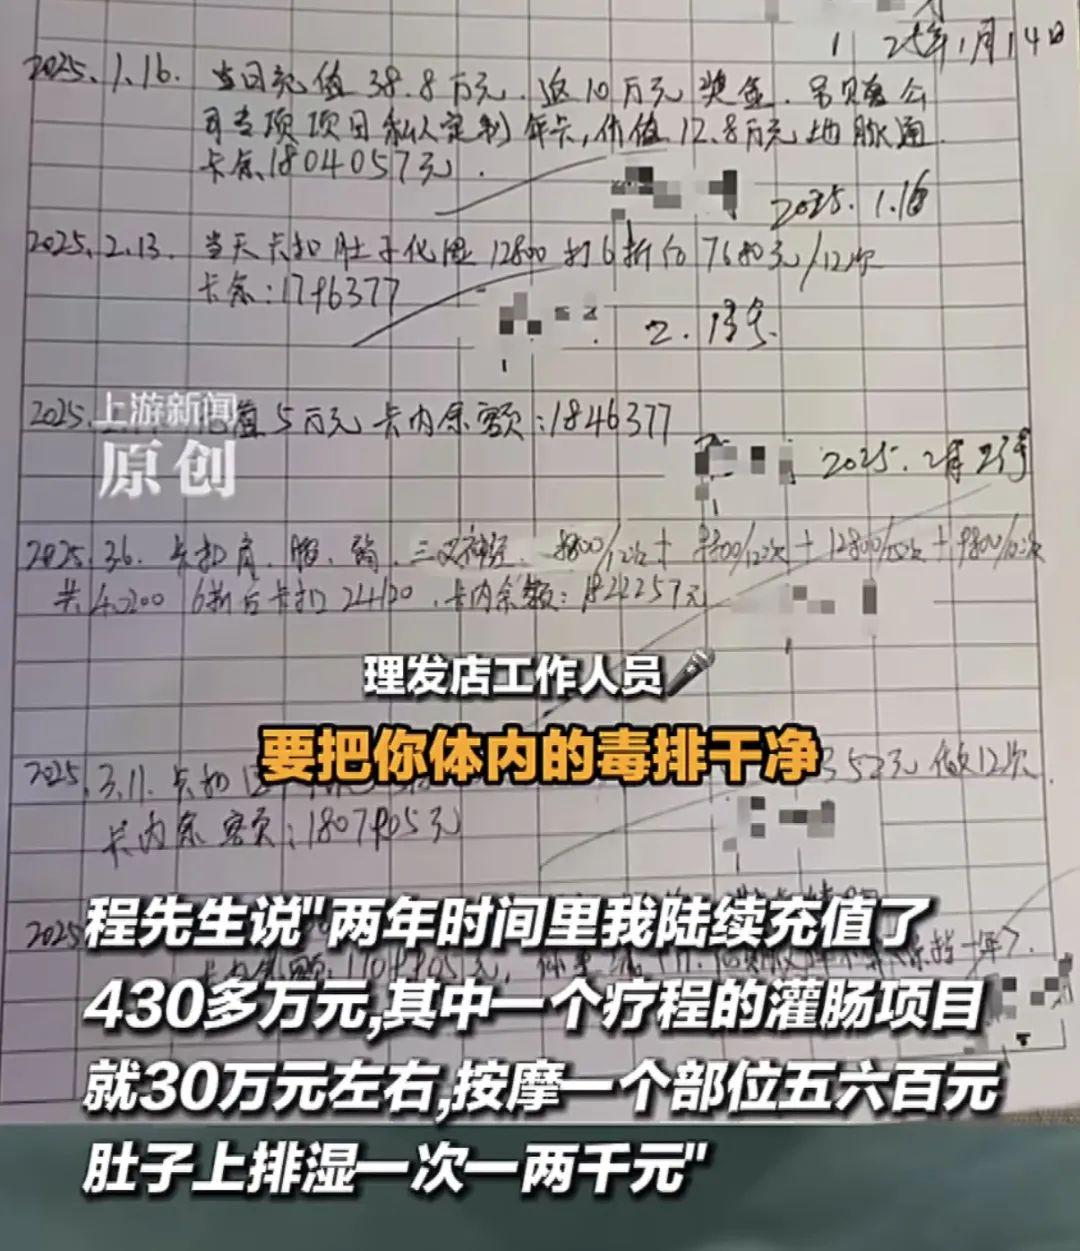 1 25年1月14日
2025.1.16. 当日充值38.8万元.返10万元奖金.另贝赠公
司专项项目私人定制年卡,价值12.8万元地脉通.
卡余.1804057元.
2025.1.16
2025.2.13. 当天卡扣肚子化湿12800打6折后7680元/12次
卡余:1796377
2.13号.
上游新闻
原创
2025. 值5万元卡内余额:1846377
2025.2月23号
2025.3.6. 卡扣肩.腿.胸.三叉神经. 9800/12次+ 9800/12次+12800/15次+9800/12次
共40200 6折后卡扣24120.卡内余额:1822257元
理发店工作人员
要把你体内的毒排干净
2025.3.11.卡扣 352元 做12次.
卡内余额:1807905元
2025
程先生说"两年时间里我陆续充值了
430多万元,其中一个疗程的灌肠项目
就30万元左右,按摩一个部位五六百元
肚子上排湿一次一两千元"